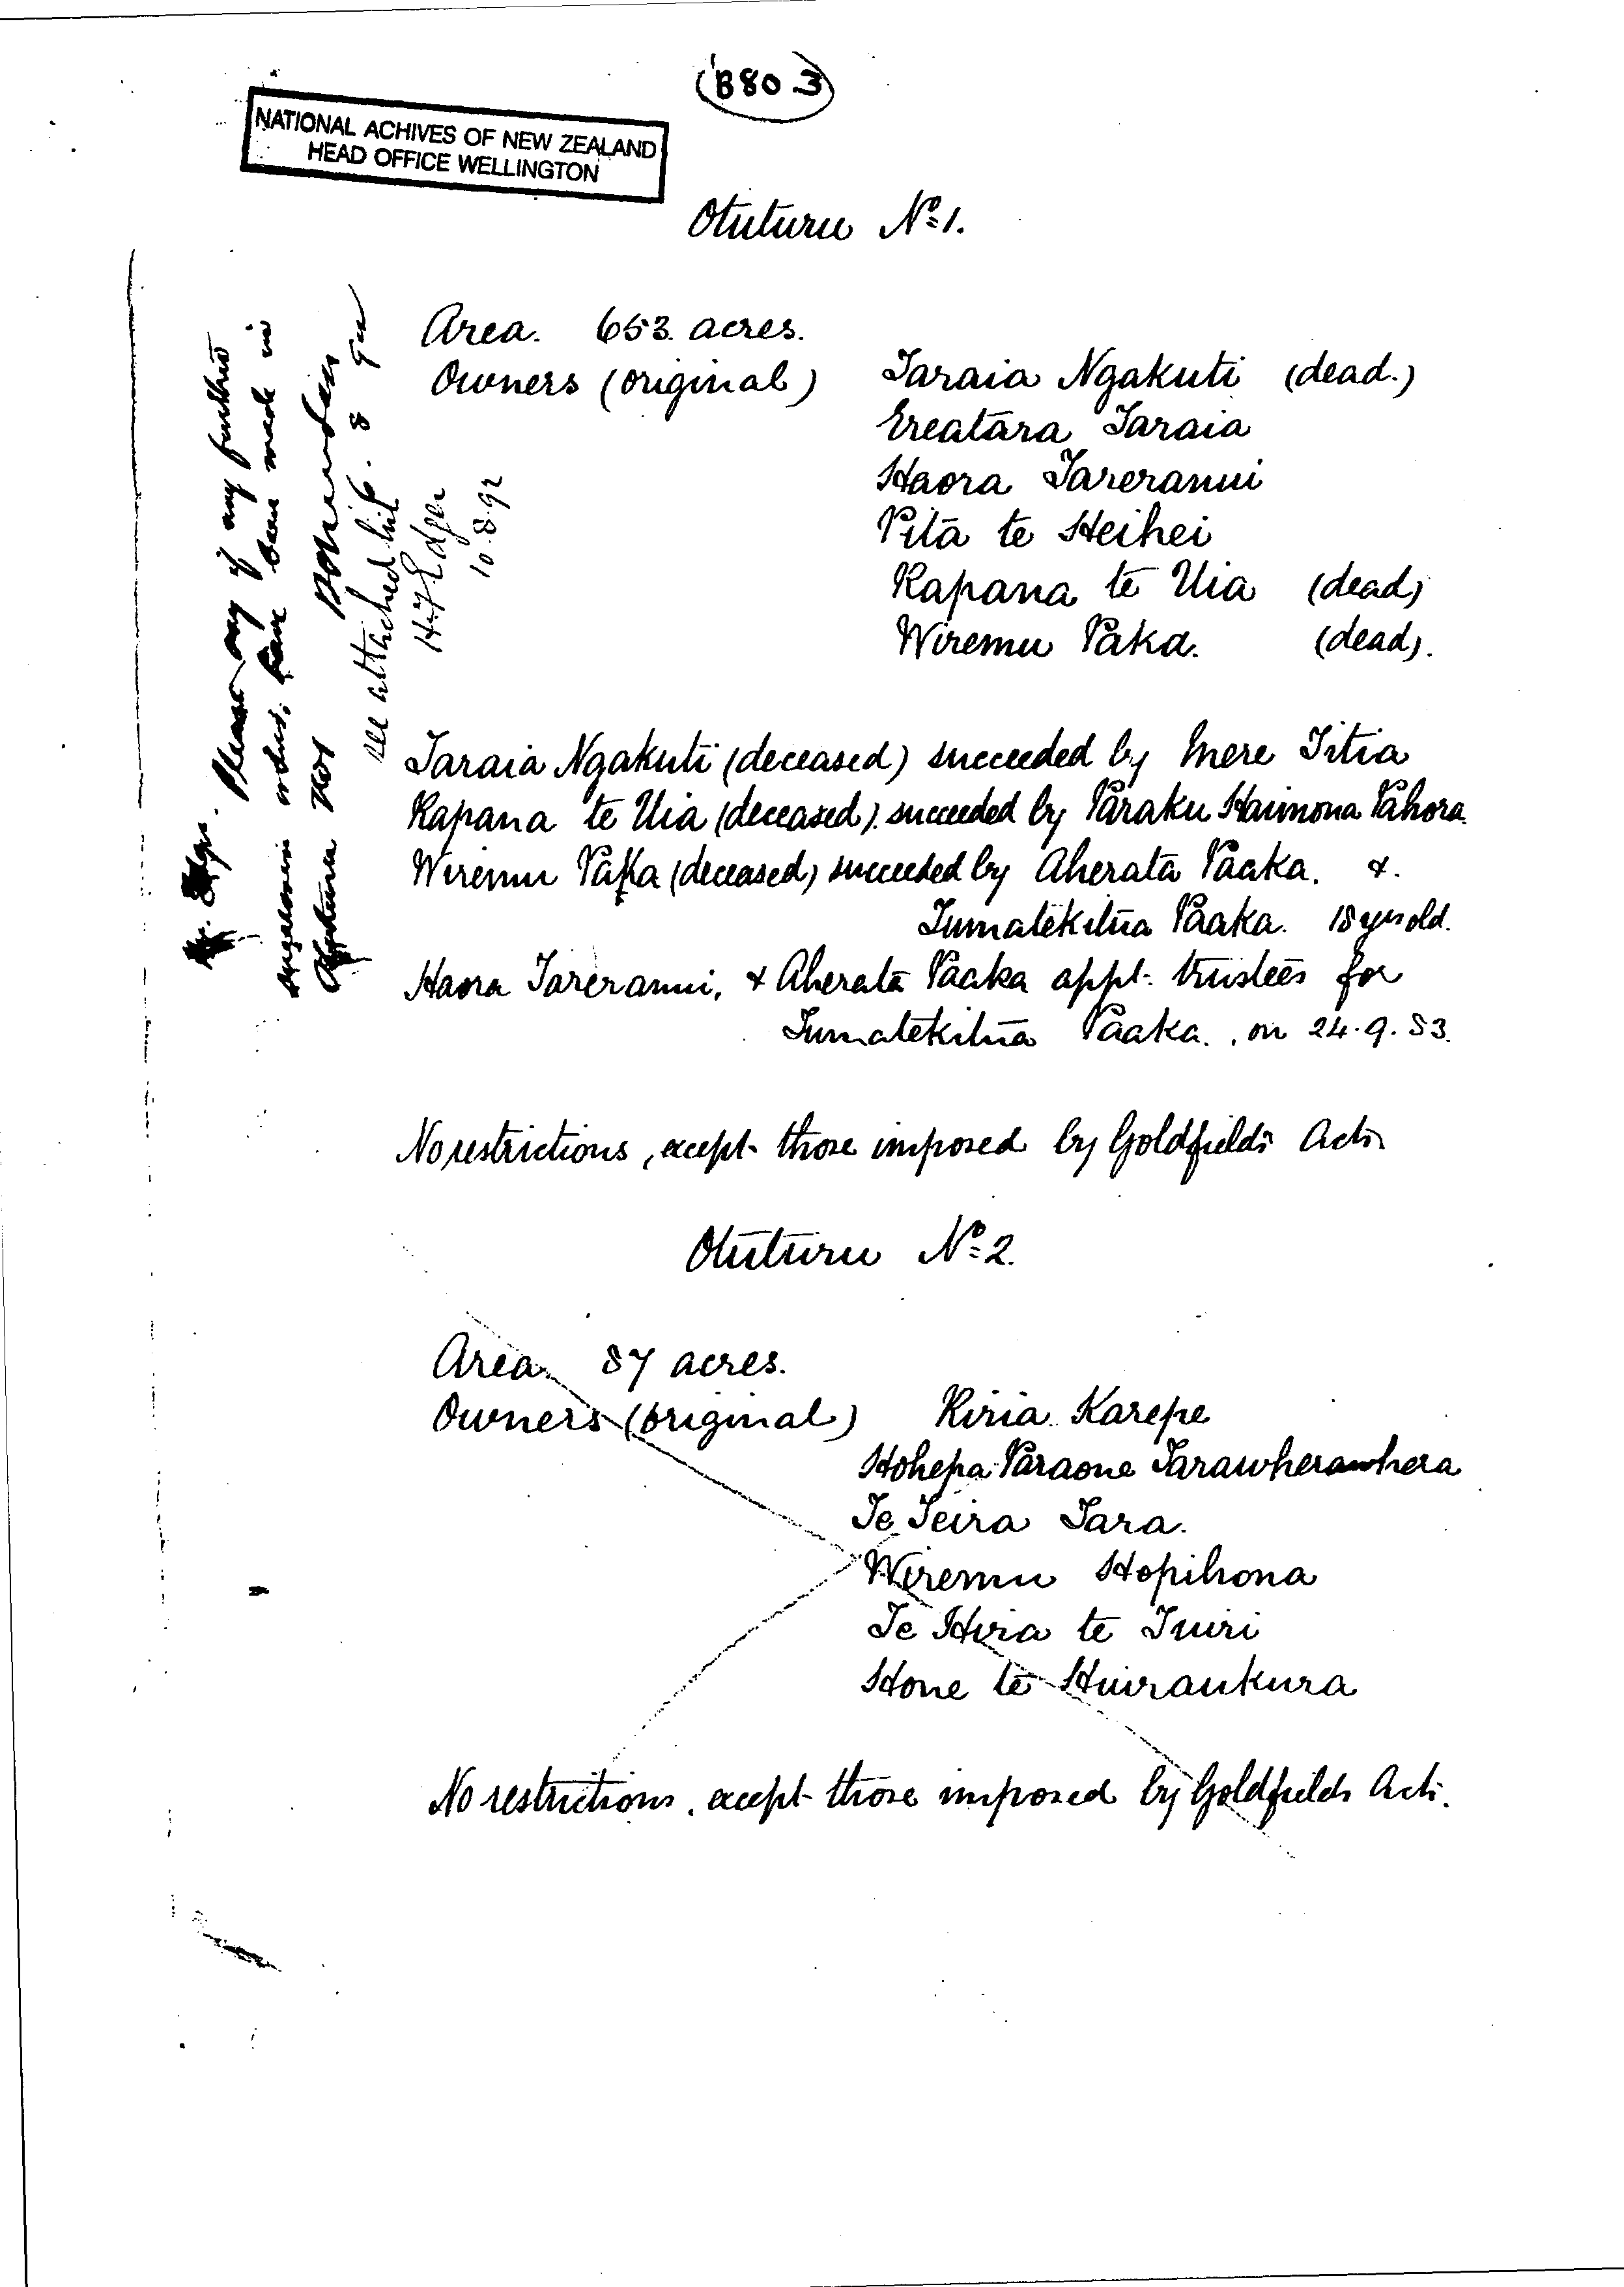 (B80 3)
NATIONAL ACHIVES OF NEW ZEALAND
HEAD OFFICE WELLINGTON
Otuturu No 1.
Area. 653 acres.
Owners (original) Taraia Ngakuti (dead.)
Ereatara Taraia
Haora Tareranui
Pita te Heihei
Kapana te Uia (dead)
Wiremu Paka. (dead).
Taraia Ngakuti (deceased) succeeded by Mere Titia
Kapana te Uia (deceased) succeeded by Paraku Haimona Pahora.
Wiremu Paka (deceased) succeeded by Aherata Paaka. &.
Tumatekitua Paaka. 18 yrs old.
Haora Tareranui, & Aherata Paaka appt. trustees for
Tumatekitua Paaka. on 24.9.83.
No restrictions, except those imposed by Goldfields Acts
Otuturu No 2.
Area. 87 acres.
Owners (original) Kiria Karepe
Hohepa Paraone Tarawherawhera
Te Teira Tara.
Wiremu Hopihona
Te Hira te Tuiri
Hone te Huiraukura
No restrictions, except those imposed by Goldfields Acts.
Please say if any further
orders, have been made in
Otuturu No 1
see attached list.
H. F. Edger
10.8.92